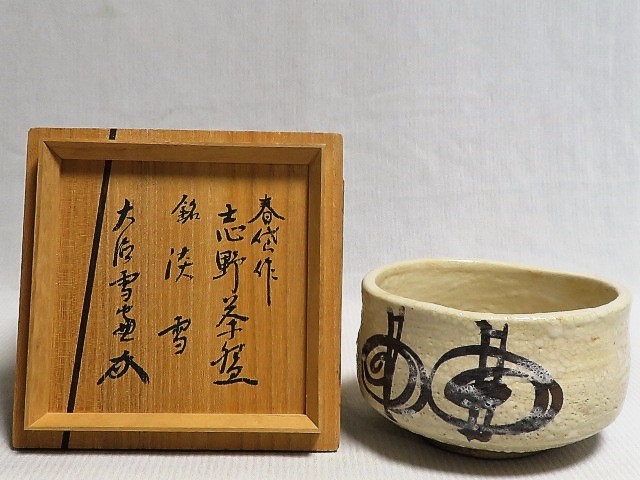 春岱作
志野茶碗
銘 淡雪
大徳雪窗